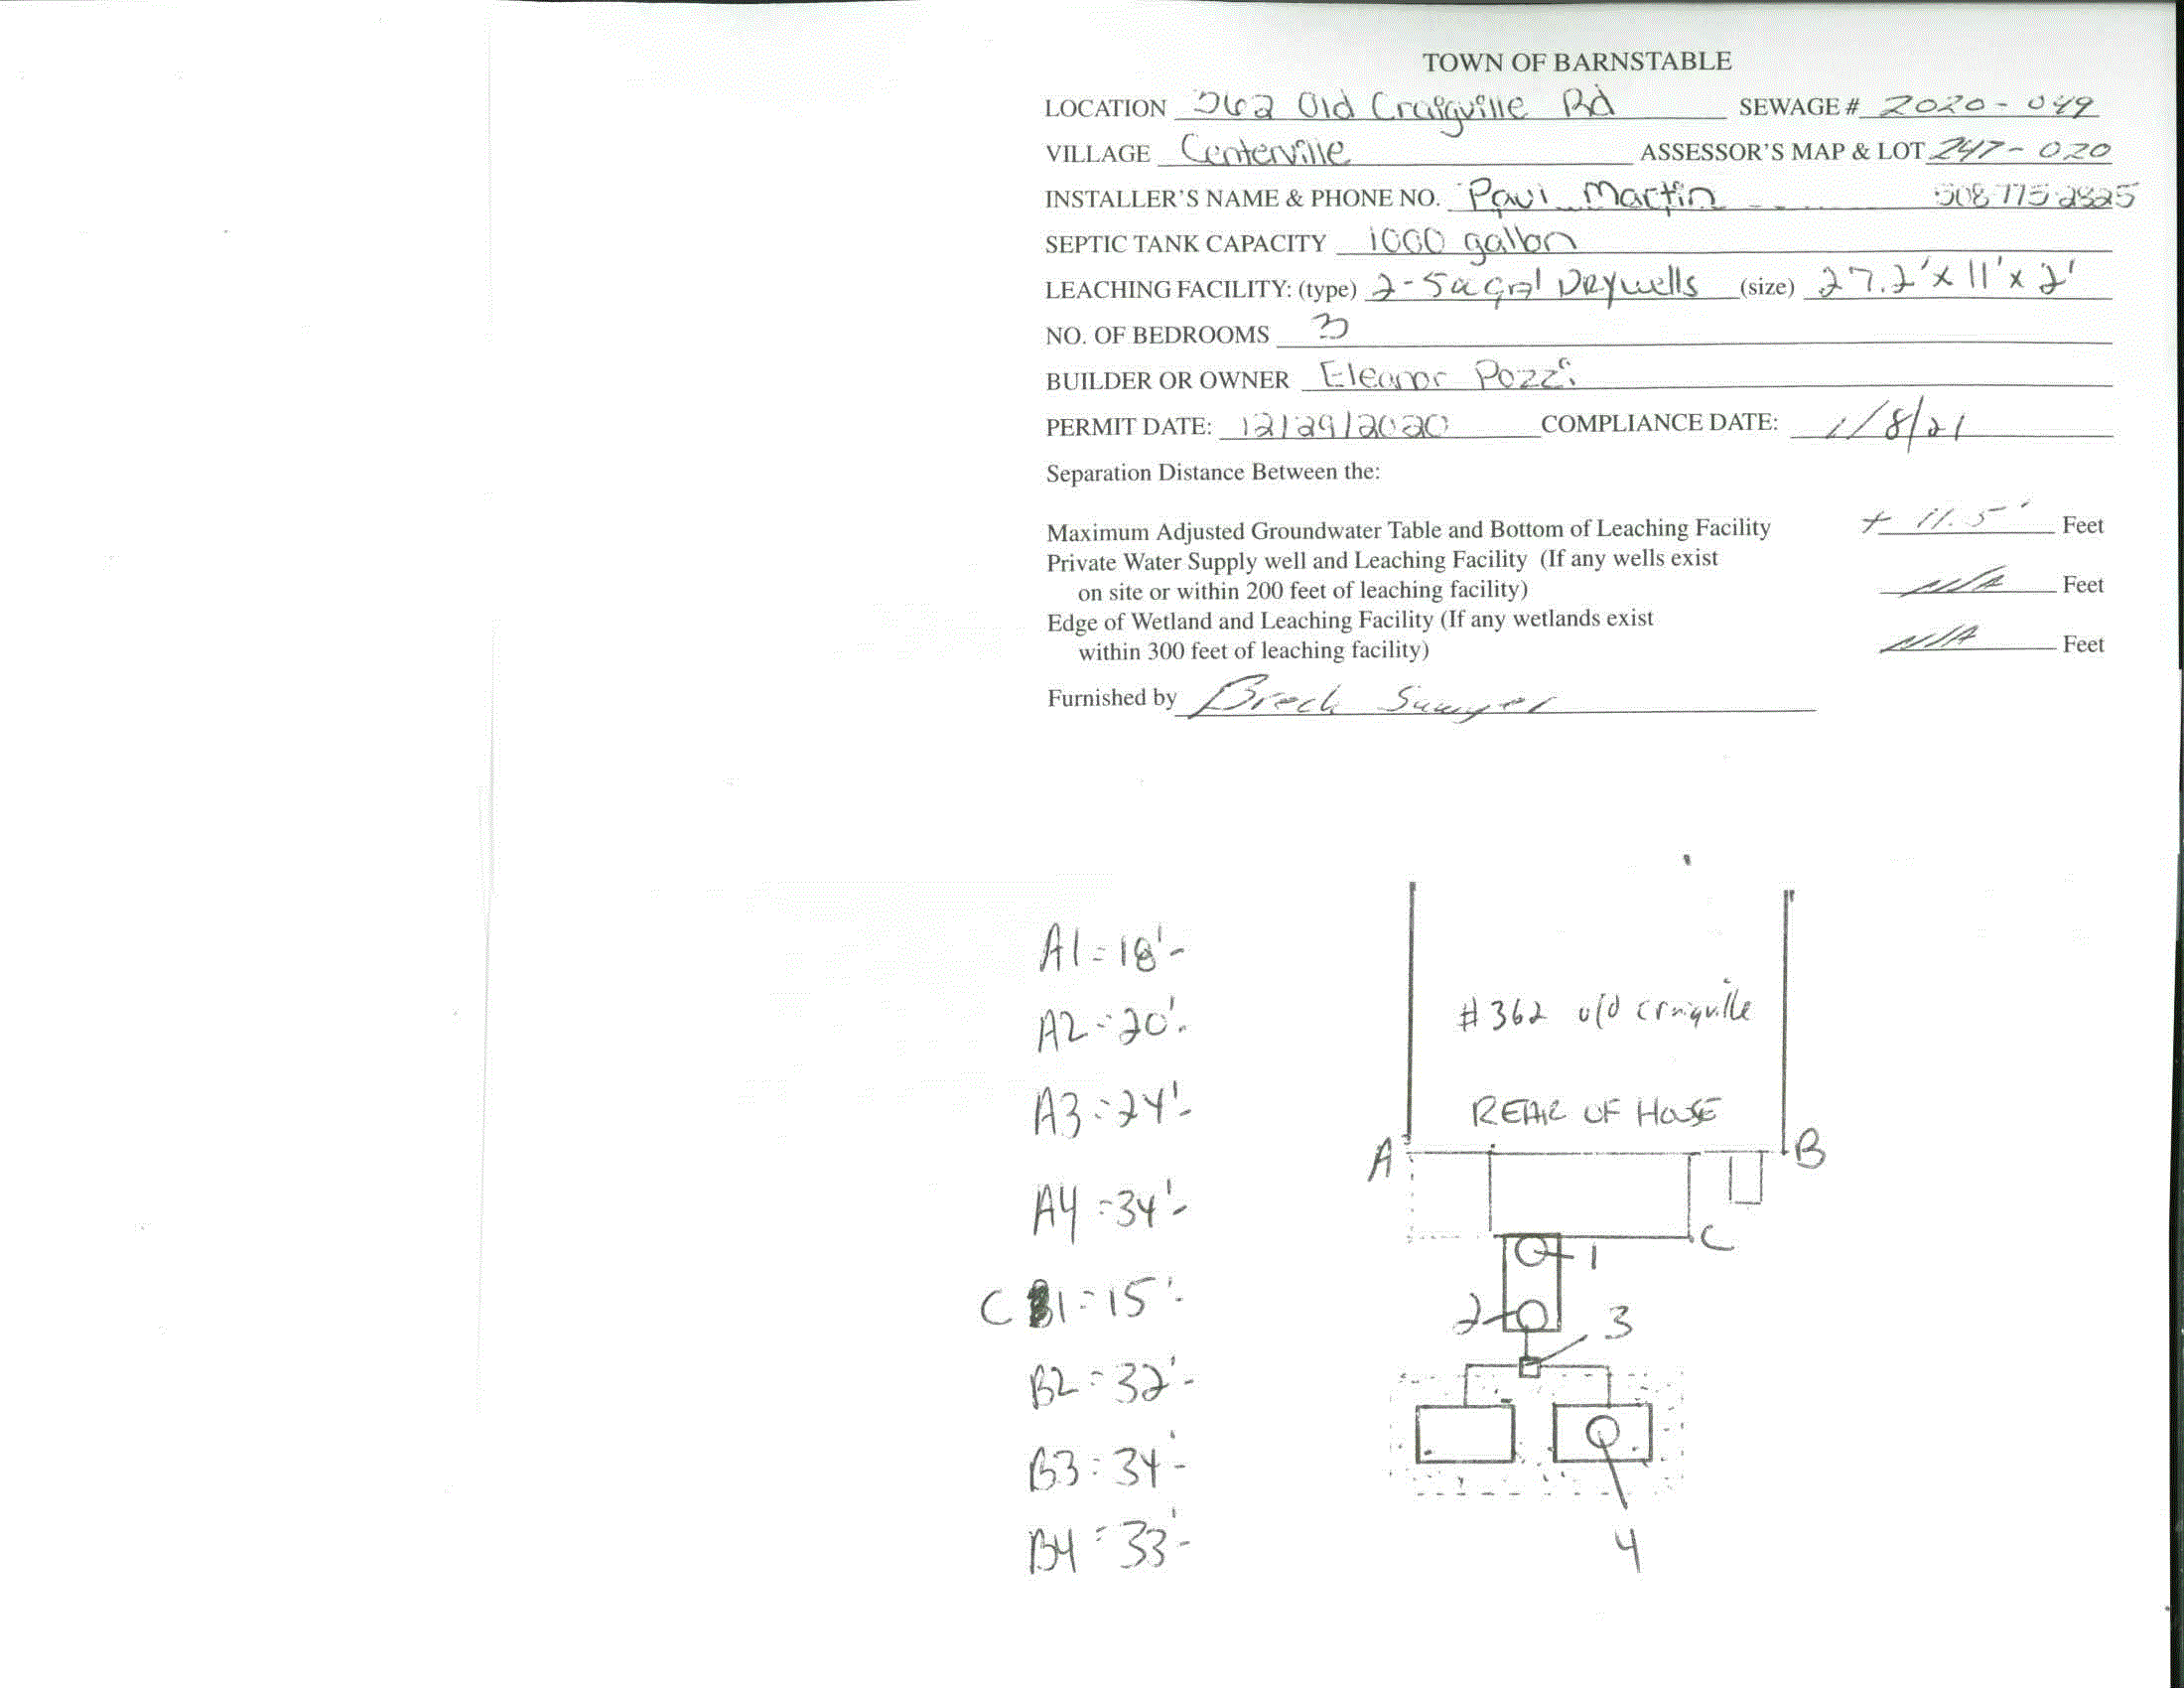 TOWN OF BARNSTABLE
LOCATION 362 Old Craigville Rd SEWAGE # 2020-049
VILLAGE Centerville ASSESSOR'S MAP & LOT 247-020
INSTALLER'S NAME & PHONE NO. Paul Martin 508 775 2825
SEPTIC TANK CAPACITY 1000 gallon
LEACHING FACILITY: (type) 2-500 gal Drywells (size) 27.2' x 11' x 2'
NO. OF BEDROOMS 3
BUILDER OR OWNER Eleanor Pozzi
PERMIT DATE: 12/29/2020 COMPLIANCE DATE: 1/8/21
Separation Distance Between the:
Maximum Adjusted Groundwater Table and Bottom of Leaching Facility + 11.5' Feet
Private Water Supply well and Leaching Facility (If any wells exist
on site or within 200 feet of leaching facility) N/A Feet
Edge of Wetland and Leaching Facility (If any wetlands exist
within 300 feet of leaching facility) N/A Feet
Furnished by Breck Sawyer
A1 = 18'-
A2 = 20'-
A3 = 24'-
A4 = 34'-
C 1 = 15'-
B2 = 32'-
B3 = 34'-
B4 = 33'-
#362 old craigville
REAR OF HOUSE
A
B
C
1
2
3
4